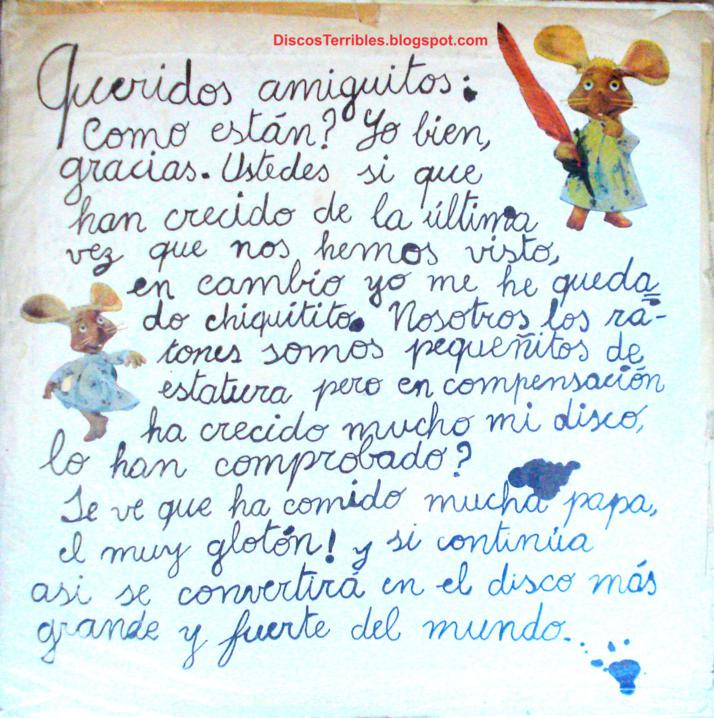 DiscosTerribles.blogspot.com
Queridos amiguitos:
Como están? Yo bien,
gracias. Ustedes si que
han crecido de la última
vez que nos hemos visto,
en cambio yo me he queda
do chiquitito. Nosotros los ra-
tones somos pequeñitos de
estatura pero en compensación
ha crecido mucho mi disco,
lo han comprobado?
Se ve que ha comido mucha papa,
el muy glotón! y si continúa
asi se convertirá en el disco más
grande y fuerte del mundo.